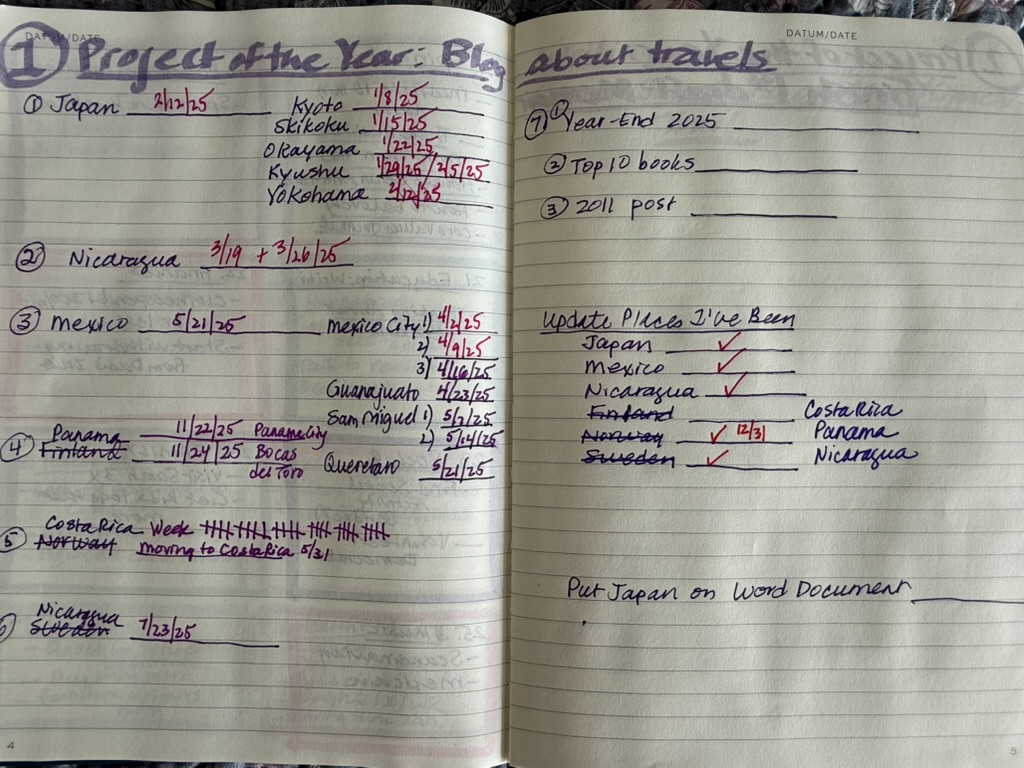 DATUM/DATE
① Project of the Year: Blog
① Japan 2/12/25 Kyoto 1/8/25
Skikoku 1/15/25
Okayama 1/22/25
Kyushu 1/29/25 / 2/5/25
Yokohama 2/12/25
② Nicaragua 3/19 + 3/26/25
③ Mexico 5/21/25 Mexico City 1) 4/2/25
2) 4/9/25
3) 4/16/25
Guanajuato 4/23/25
San Miguel 1) 5/7/25
2) 5/14/25
Queretaro 5/21/25
Panama 11/22/25 Panama City
④ Finland 11/24/25 Bocas
del Toro
Costa Rica Week
⑤ Norway moving to Costa Rica 5/31
Nicaragua
⑥ Sweden 7/23/25
4
DATUM/DATE
about travels
⑦ ① Year-End 2025
② Top 10 books
③ 2011 post
Update Places I've Been
Japan ✓
Mexico ✓
Nicaragua ✓
Finland Costa Rica
Norway ✓ 12/31 Panama
Sweden ✓ Nicaragua
Put Japan on Word Document
5